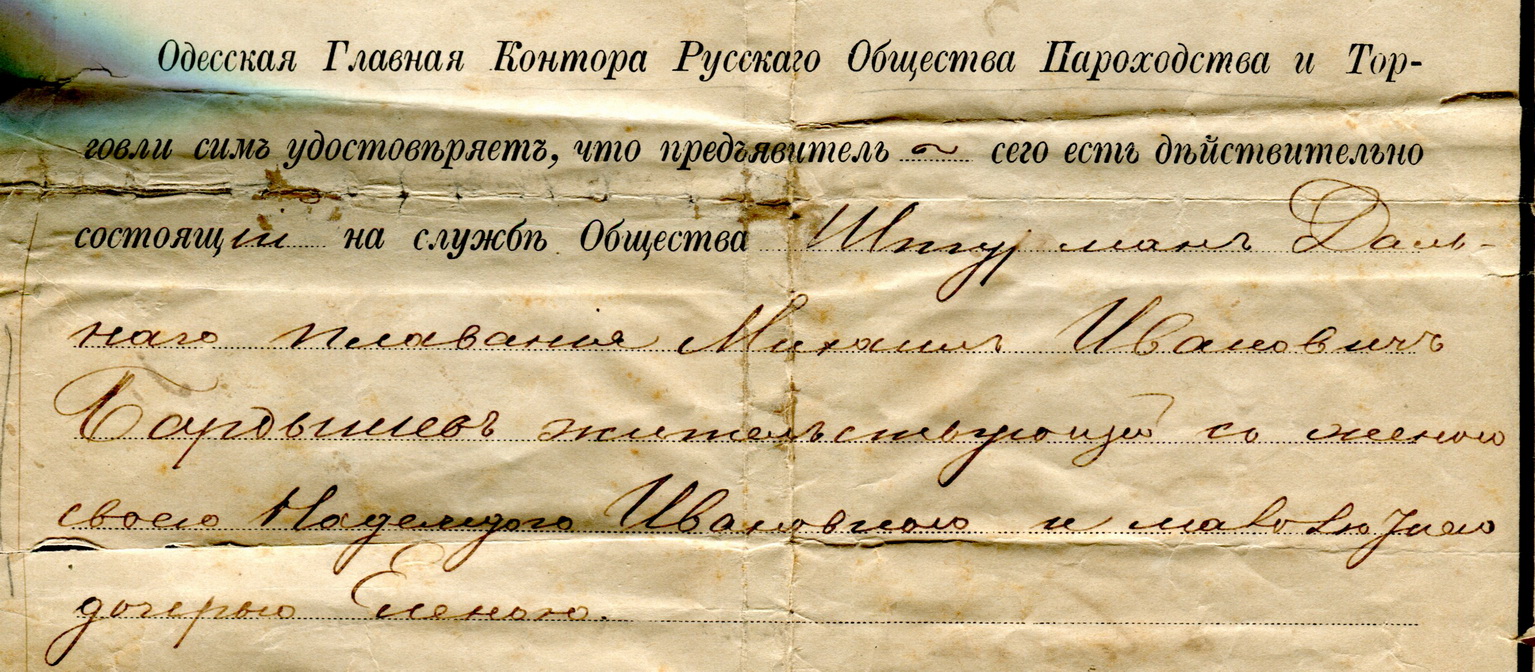 Одесская Главная Контора Русскаго Общества Пароходства и Тор-
говли симъ удостовѣряетъ, что предъявитель ~ сего есть дѣйствительно
состоящій на службѣ Общества Штурманъ Даль-
наго плаванія Михаилъ Ивановичъ
Бардышевъ жительствующій со женою
своею Надеждою Ивановною и малолѣтнею
дочерью Еленою.